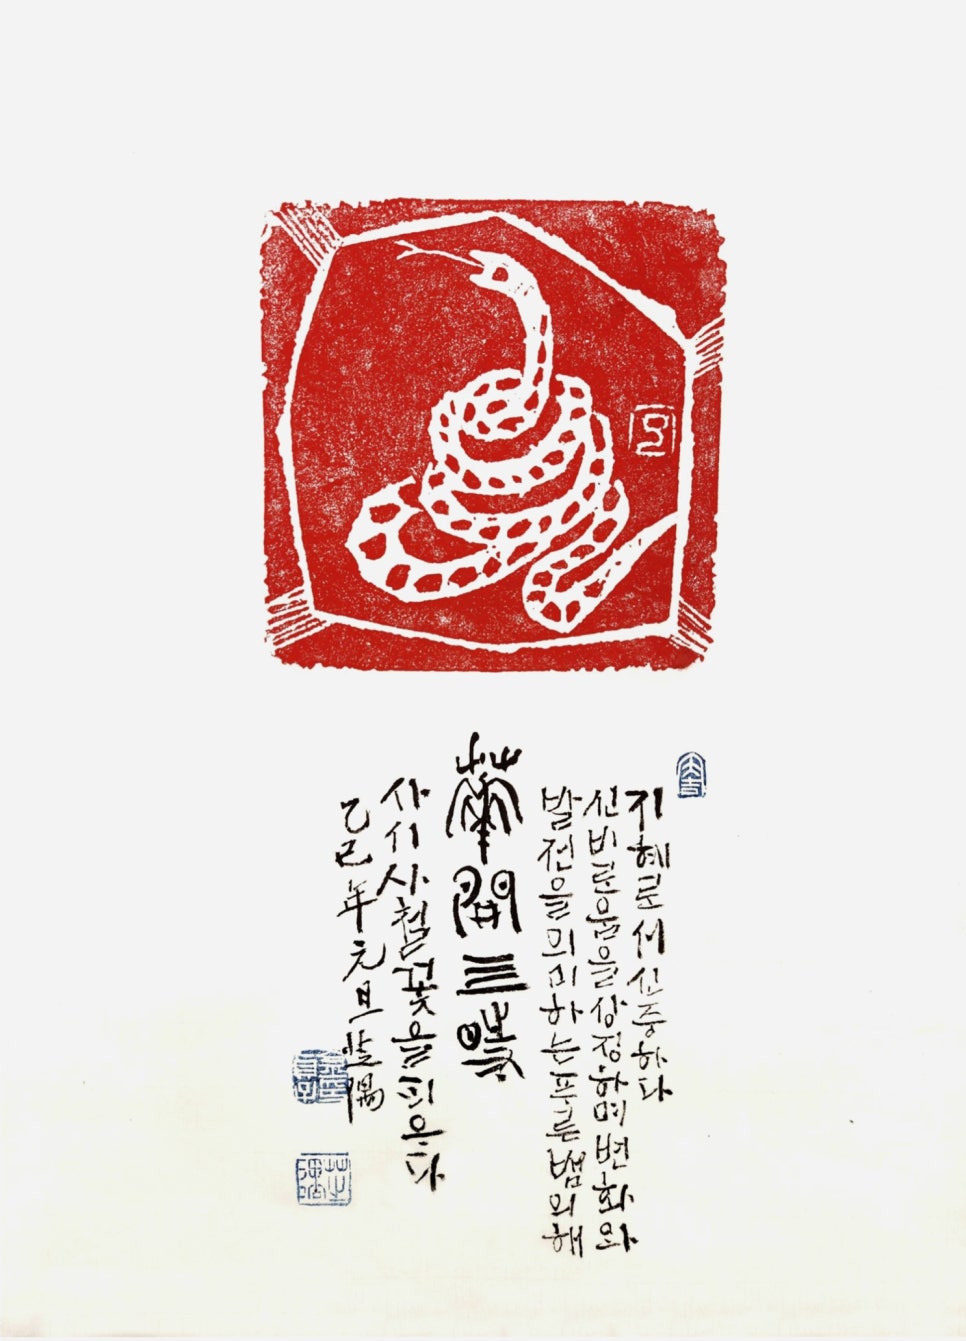 지혜로서신중하다
신비로움을상징하며변화와
발전을의미하는푸른뱀의해
華開亖時
사시사철꽃을피운다
乙巳年元旦